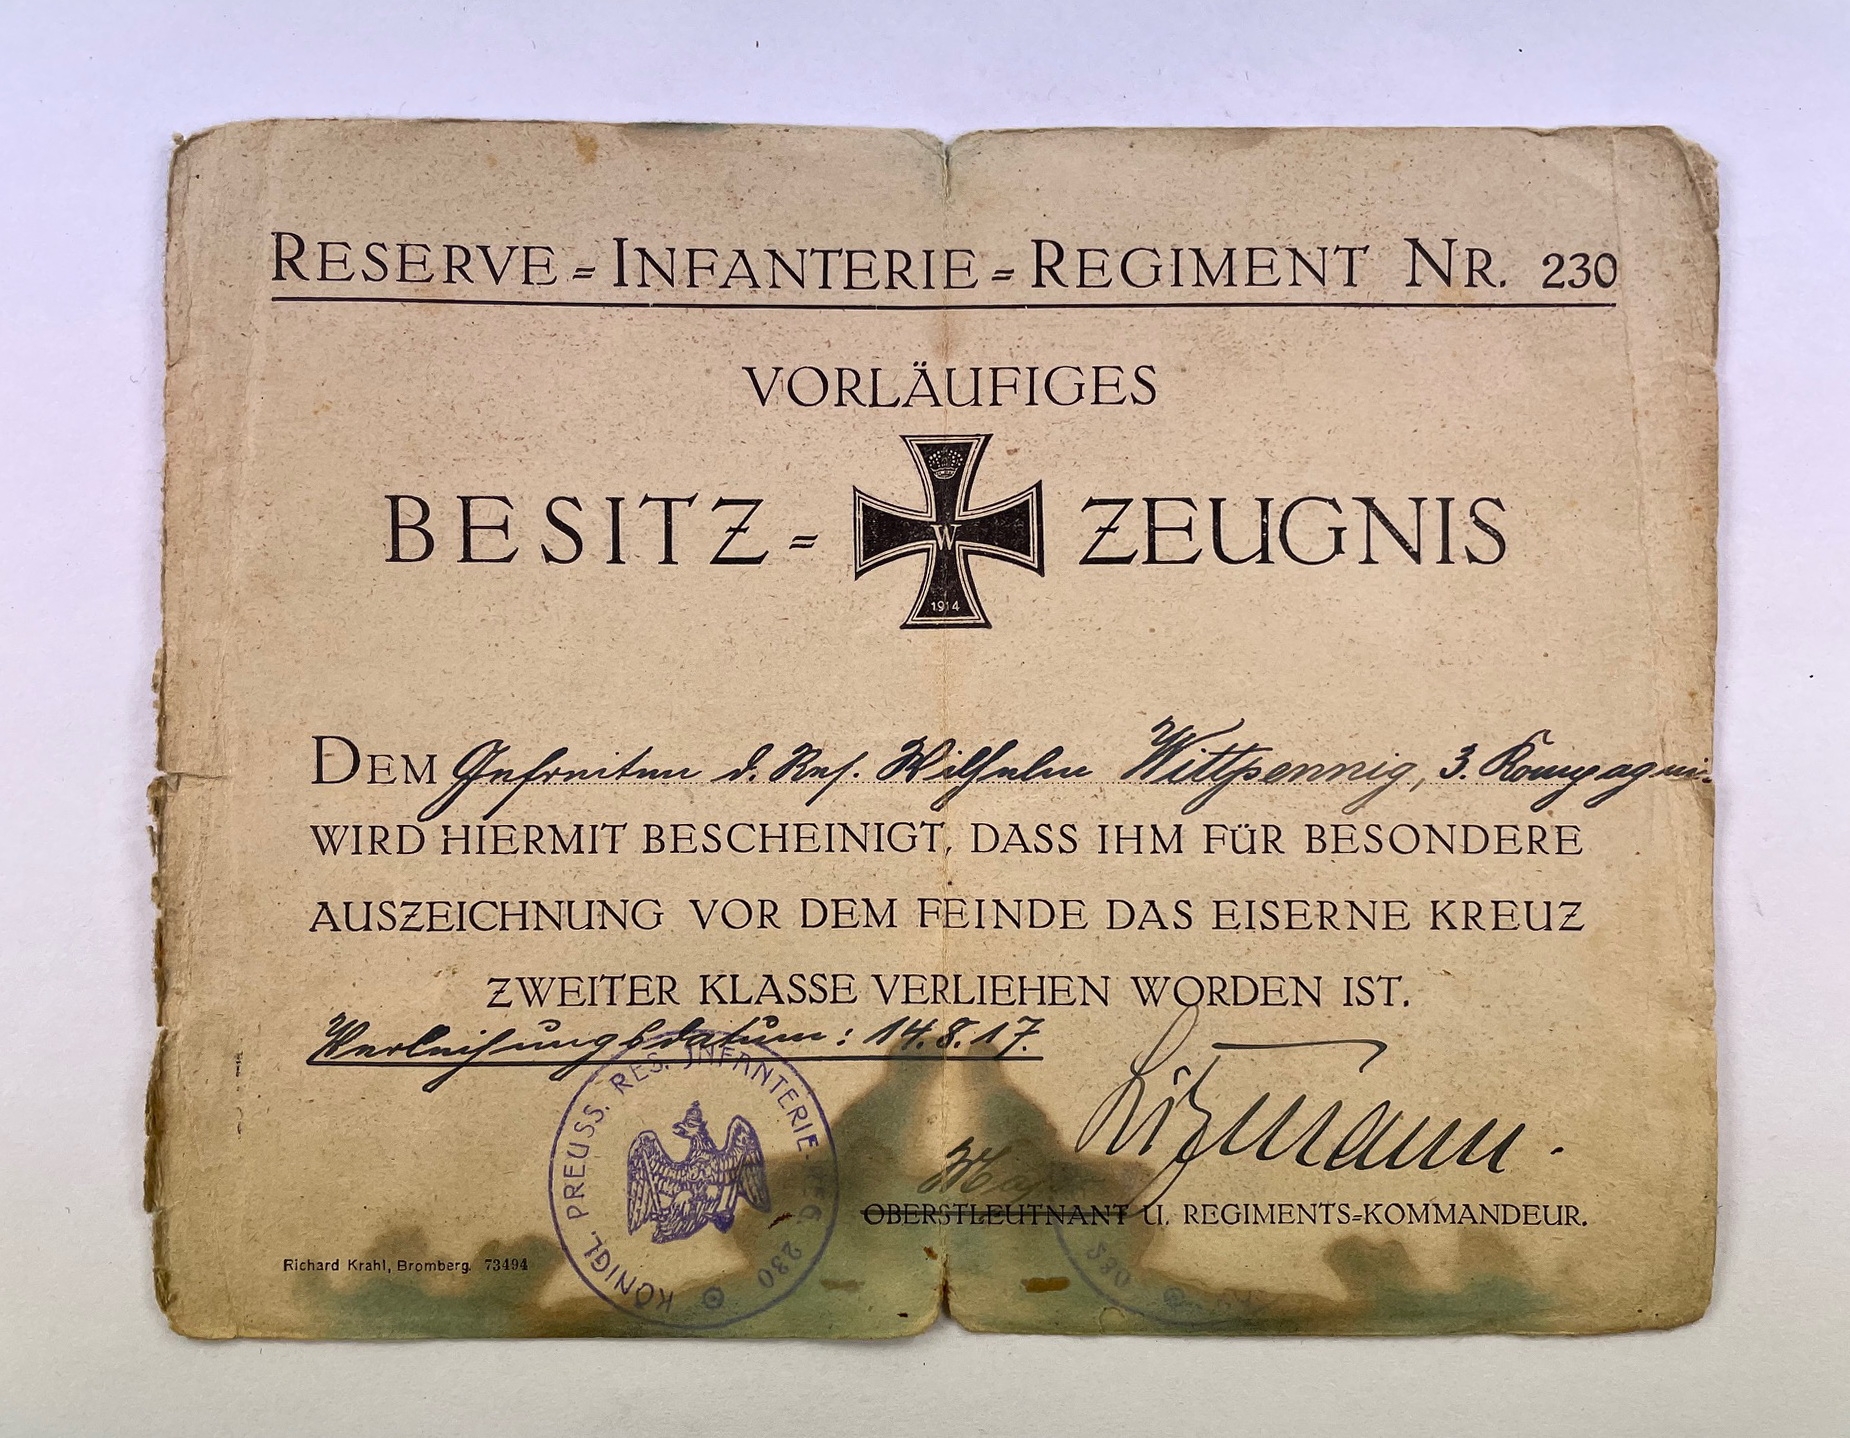 RESERVE=INFANTERIE=REGIMENT NR. 230
VORLÄUFIGES
BESITZ= ZEUGNIS
W
1914
DEM Gefreiten d. Res. Wilhelm Wittpennig, 3. Kompagnie
WIRD HIERMIT BESCHEINIGT, DASS IHM FÜR BESONDERE
AUSZEICHNUNG VOR DEM FEINDE DAS EISERNE KREUZ
ZWEITER KLASSE VERLIEHEN WORDEN IST.
Verleihungsdatum: 14.8.17.
KÖNIGL. PREUSS. RES. INFANTERIE REG. 230
Litzmann.
Major
OBERSTLEUTNANT U. REGIMENTS=KOMMANDEUR.
Richard Krahl, Bromberg. 73494